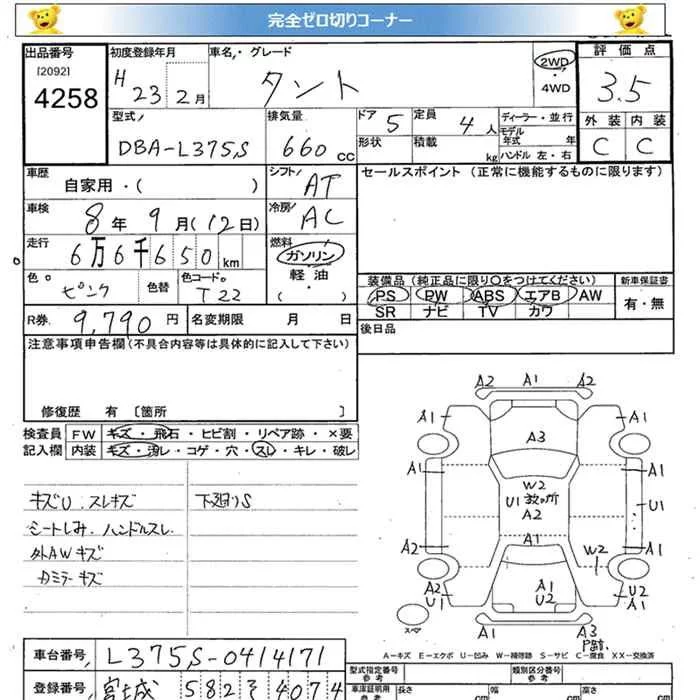 完全ゼロ切りコーナー
出品番号 初度登録年月 車名・グレード 評価点
[2092] 4258 H 23 2月 タント 2WD・4WD 3.5
型式 排気量 ドア 5 定員 4人 ディーラー・並行 外装 内装
DBA-L375S 660cc 形状 積載 kg モデル年式 年 ハンドル 左・右 C C
車歴 シフト AT セールスポイント (正常に機能するものに限ります)
自家用・( )
車検 8年 9月(12日) 冷房 AC
走行 6万6千650km 燃料 ガソリン
色 ピンク 色替 色コード T22 軽油 ( ・ ) 装備品 (純正品に限り○をつけてください) 新車保証書
PS PW ABS エアB AW 有・無
SR ナビ TV カワ
R券 9,790円 名変期限 月 日 後日品
注意事項申告欄(不具合内容等は具体的に記入して下さい)
修復歴 有 [箇所 ]
検査員 FW キズ・飛石・ヒビ割・リペア跡・×要
記入欄 内装 キズ・汚レ・コゲ・穴・スレ・キレ・破レ
キズU . スレキズ 下廻りS
シートしみ. ハンドルスレ
外AWキズ
カミラーキズ
A2 A1 A2
A1 A1
A3
A1 A1
W2
U1 数ヶ所 U1
A2
A2 A1 W2 A1
A2 A1 U2
U1 U2 U1
スペア A1 A3
A-キズ E-エクボ U-凹み W-補修跡 S-サビ C-腐食 XX-交換済
車台番号 L375S-0414171 型式指定番号 参考 類別区分番号 参考
登録番号 宮城 582 そ 4074 車庫証明用 参考 長さ cm 幅 cm 高さ cm